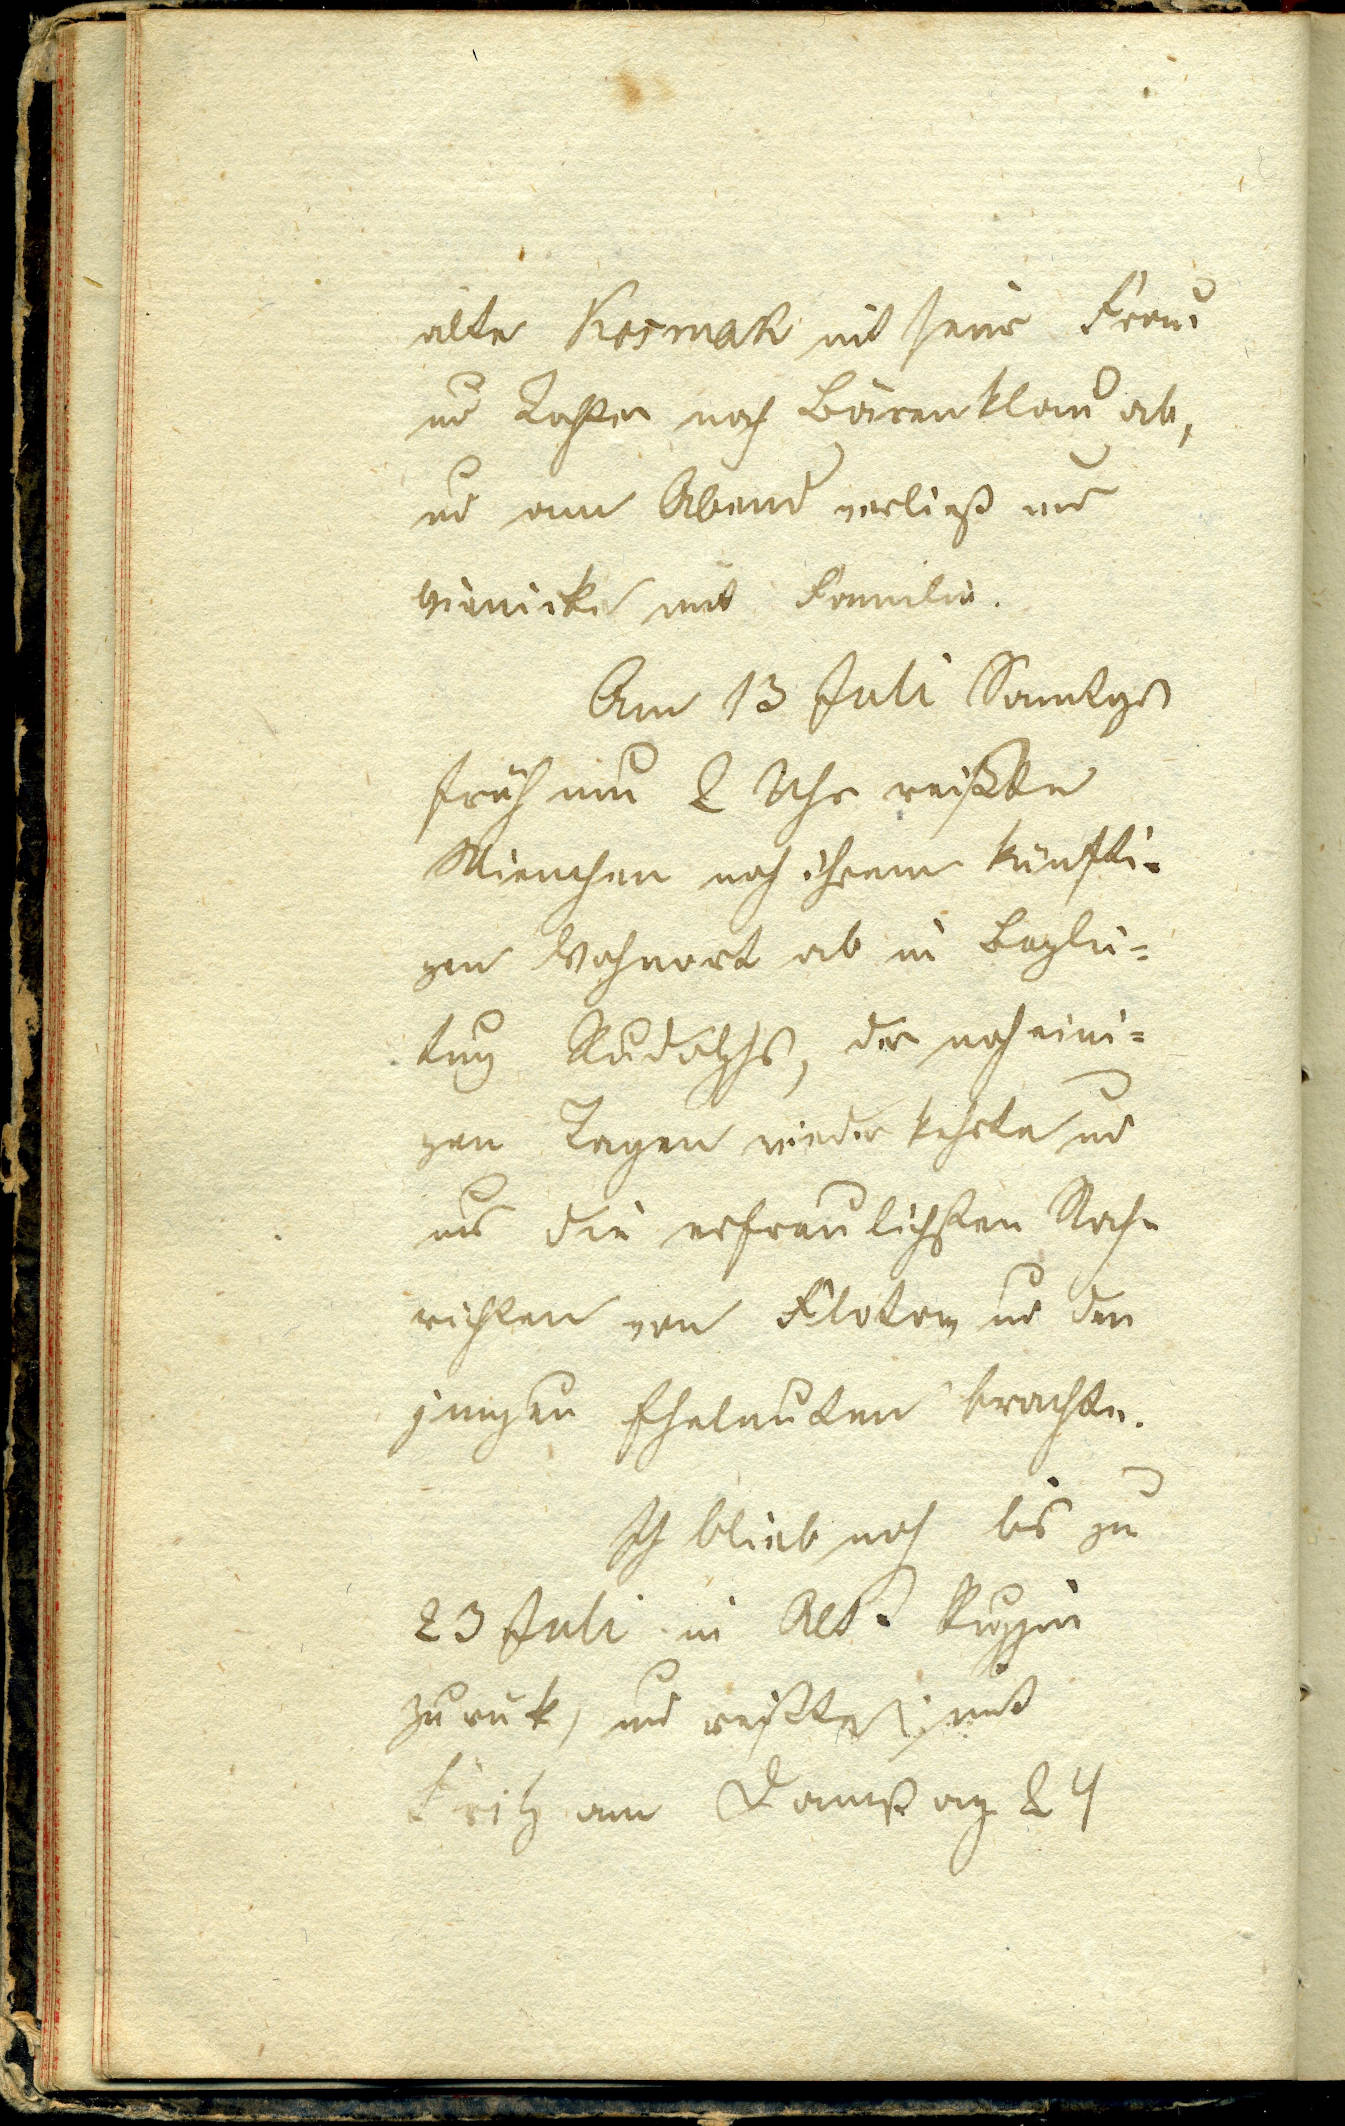 alte Kosmak mit seine Frau
und Tochter nach Bärenklau ab,
und am Abend verließ uns
Hienicke mit Familie.
Am 13 Juli Sonntags
früh um 2 Uhr reißte
Mienchen nach ihrem künfti-
gen Wohnort ab in Beglei=
tung Rudolphs, der nach eini=
gen Tagen wieder kehrte und
uns die erfreulichsten Nach-
richten von Flotow und den
jungen Eheleuten brachte.
Ich blieb noch bis zu
23 Juli in Alt- Ruppin
zurük, und reißte mit
Fritz am Donnstag 24